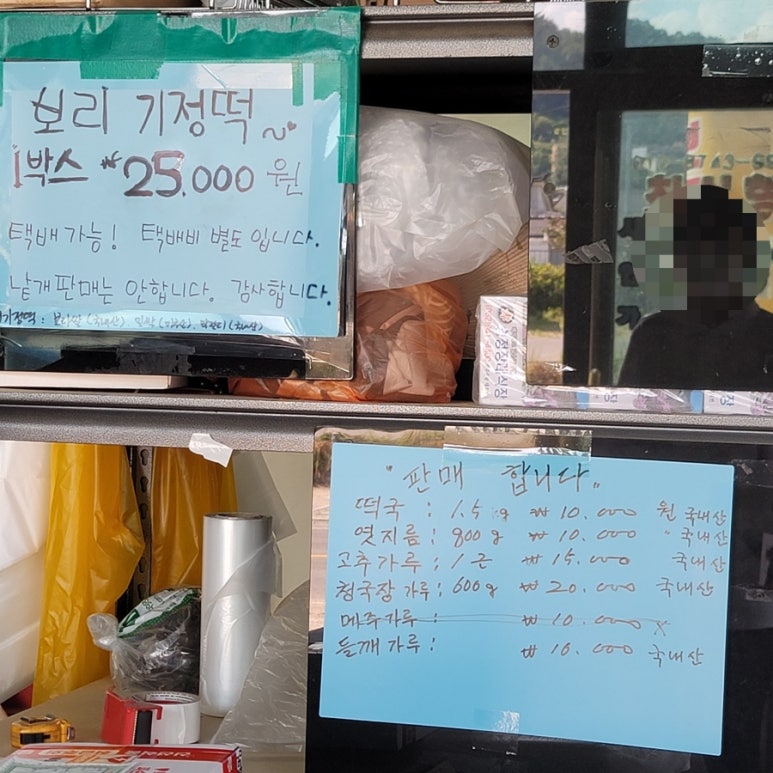 보리 기정떡
1박스 ₩25.000 원
택배가능! 택배비 별도입니다.
낱개판매는 안합니다. 감사합니다.
"판매 합니다"
떡국 : 1.5 ₩10.000 원 국내산
엿지름 : 800g ₩10.000 " 국내산
고추가루 : 1근 ₩15.000 국내산
청국장가루 : 600g ₩20.000 국내산
메주가루 : ₩10.000
들깨가루 : ₩10.000 국내산